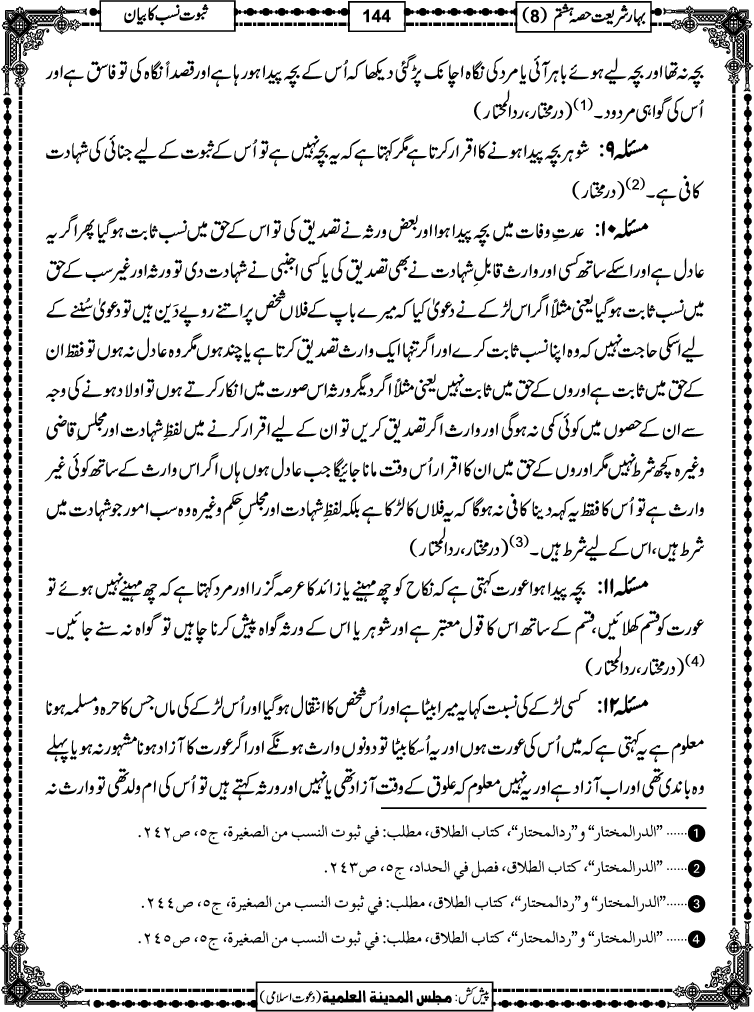 بہارِ شریعت حصہ ہشتم (8)
144
ثبوت نسب کا بیان
بچہ نہ تھا اور بچہ لیے ہوئے باہر آئی یا مرد کی نگاہ اچانک پڑ گئی دیکھا کہ اُس کے بچہ پیدا ہو رہا ہے اور قصداً نگاہ کی تو فاسق ہے اور
اُس کی گواہی مردود۔(1) (درمختار، ردالمحتار)
مسئلہ ۹: شوہر بچہ پیدا ہونے کا اقرار کرتا ہے مگر کہتا ہے کہ یہ بچہ نہیں ہے تو اُس کے ثبوت کے لیے جنائی کی شہادت
کافی ہے۔(2) (درمختار)
مسئلہ ۱۰: عدتِ وفات میں بچہ پیدا ہوا اور بعض ورثہ نے تصدیق کی تو اس کے حق میں نسب ثابت ہوگیا پھر اگر یہ
عادل ہے اور اسکے ساتھ کسی اور وارث قابلِ شہادت نے بھی تصدیق کی یا کسی اجنبی نے شہادت دی تو ورثہ اور غیر سب کے حق
میں نسب ثابت ہوگیا یعنی مثلاً اگر اس لڑکے نے دعویٰ کیا کہ میرے باپ کے فلاں شخص پر اتنے روپے دَین ہیں تو دعویٰ سُننے کے
لیے اسکی حاجت نہیں کہ وہ اپنا نسب ثابت کرے اور اگر تنہا ایک وارث تصدیق کرتا ہے یا چند ہوں مگر وہ عادل نہ ہوں تو فقط ان
کے حق میں ثابت ہے اوروں کے حق میں ثابت نہیں یعنی مثلاً اگر دیگر ورثہ اس صورت میں انکار کرتے ہوں تو اولاد ہونے کی وجہ
سے ان کے حصوں میں کوئی کمی نہ ہوگی اور وارث اگر تصدیق کریں تو ان کے لیے اقرار کرنے میں لفظِ شہادت اور مجلسِ قاضی
وغیرہ کچھ شرط نہیں مگر اوروں کے حق میں ان کا اقرار اُس وقت مانا جائیگا جب عادل ہوں ہاں اگر اس وارث کے ساتھ کوئی غیر
وارث ہے تو اُس کا فقط یہ کہہ دینا کافی نہ ہوگا کہ یہ فلاں کا لڑکا ہے بلکہ لفظِ شہادت اور مجلسِ حکم وغیرہ وہ سب امور جو شہادت میں
شرط ہیں، اس کے لیے شرط ہیں۔(3) (درمختار، ردالمحتار)
مسئلہ ۱۱: بچہ پیدا ہوا عورت کہتی ہے کہ نکاح کو چھ مہینے یا زائد کا عرصہ گزرا اور مرد کہتا ہے کہ چھ مہینے نہیں ہوئے تو
عورت کو قسم کھلائیں، قسم کے ساتھ اس کا قول معتبر ہے اور شوہر یا اس کے ورثہ گواہ پیش کرنا چاہیں تو گواہ نہ سنے جائیں۔
(4) (درمختار، ردالمحتار)
مسئلہ ۱۲: کسی لڑکے کی نسبت کہا یہ میرا بیٹا ہے اور اُس شخص کا انتقال ہوگیا اور اُس لڑکے کی ماں جس کا حرہ و مسلمہ ہونا
معلوم ہے یہ کہتی ہے کہ میں اُس کی عورت ہوں اور یہ اُسکا بیٹا تو دونوں وارث ہونگے اور اگر عورت کا آزاد ہونا مشہور نہ ہو یا پہلے
وہ باندی تھی اور اب آزاد ہے اور یہ نہیں معلوم کہ علوق کے وقت آزاد تھی یا نہیں اور ورثہ کہتے ہیں تو اُس کی ام ولد تھی تو وارث نہ
1 ...... ”الدرالمختار“ و ”ردالمحتار“، کتاب الطلاق، مطلب: في ثبوت النسب من الصغیرة، ج٥، ص٢٤٢.
2 ...... ”الدرالمختار“، کتاب الطلاق، فصل في الحداد، ج٥، ص٢٤٣.
3 ...... ”الدرالمختار“ و ”ردالمحتار“، کتاب الطلاق، مطلب: في ثبوت النسب من الصغیرة، ج٥، ص٢٤٤.
4 ...... ”الدرالمختار“ و ”ردالمحتار“، کتاب الطلاق، مطلب: في ثبوت النسب من الصغیرة، ج٥، ص٢٤٥.
پیش کش: مجلس المدینة العلمیة (دعوت اسلامی)